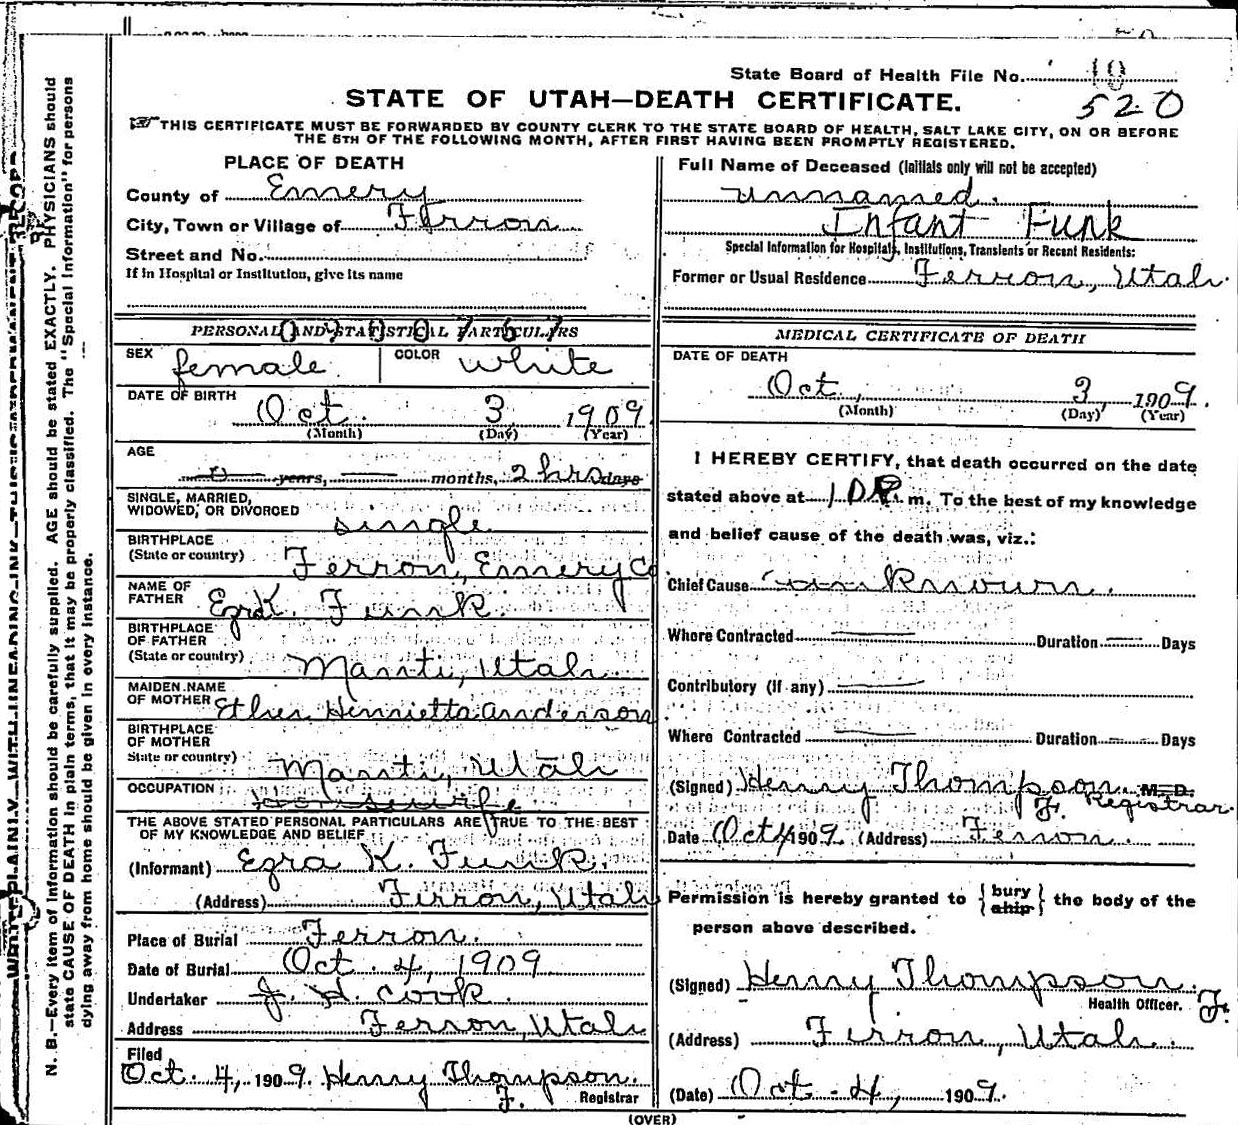 State Board of Health File No. 10
520
STATE OF UTAH—DEATH CERTIFICATE.
THIS CERTIFICATE MUST BE FORWARDED BY COUNTY CLERK TO THE STATE BOARD OF HEALTH, SALT LAKE CITY, ON OR BEFORE
THE 5TH OF THE FOLLOWING MONTH, AFTER FIRST HAVING BEEN PROMPTLY REGISTERED.
PLACE OF DEATH
County of Emery
City, Town or Village of Ferron
Street and No.
If in Hospital or Institution, give its name
PERSONAL AND STATISTICAL PARTICULARS
SEX female COLOR white
DATE OF BIRTH
Oct. 3, 1909
(Month) (Day) (Year)
AGE
0 years, months, 2 hrs days
SINGLE, MARRIED,
WIDOWED, OR DIVORCED single
BIRTHPLACE
(State or country) Ferron, Emery Co
NAME OF
FATHER Ezra K. Funk
BIRTHPLACE
OF FATHER
(State or country) Manti, Utah
MAIDEN NAME
OF MOTHER Henrietta Anderson
BIRTHPLACE
OF MOTHER
State or country) Manti, Utah
OCCUPATION Housewife
THE ABOVE STATED PERSONAL PARTICULARS ARE TRUE TO THE BEST
OF MY KNOWLEDGE AND BELIEF
(Informant) Ezra K. Funk.
(Address) Ferron, Utah
Place of Burial Ferron.
Date of Burial Oct. 4, 1909
Undertaker J. H. Cook.
Address Ferron, Utah
Filed
Oct. 4, 1909. Henry Thompson.
F. Registrar
Full Name of Deceased (Initials only will not be accepted)
unnamed.
Infant Funk
Special Information for Hospitals, Institutions, Transients or Recent Residents:
Former or Usual Residence Ferron, Utah.
MEDICAL CERTIFICATE OF DEATH
DATE OF DEATH
Oct, 3, 1909.
(Month) (Day) (Year)
I HEREBY CERTIFY, that death occurred on the date
stated above at m. To the best of my knowledge
and belief cause of the death was, viz.:
Chief Cause unknown.
Where Contracted Duration Days
Contributory (if any)
Where Contracted Duration Days
(Signed) Henry Thompson M. D.
F. Registrar
Date Oct 4 1909. (Address) Ferron.
Permission is hereby granted to { bury ship } the body of the
person above described.
(Signed) Henry Thompson.
Health Officer. F.
(Address) Ferron, Utah.
(Date) Oct. 4, 1909.
(OVER)
N. B.—Every item of information should be carefully supplied. AGE should be stated EXACTLY. PHYSICIANS should
state CAUSE OF DEATH in plain terms, that it may be properly classified. The "Special Information" for persons
dying away from home should be given in every instance.